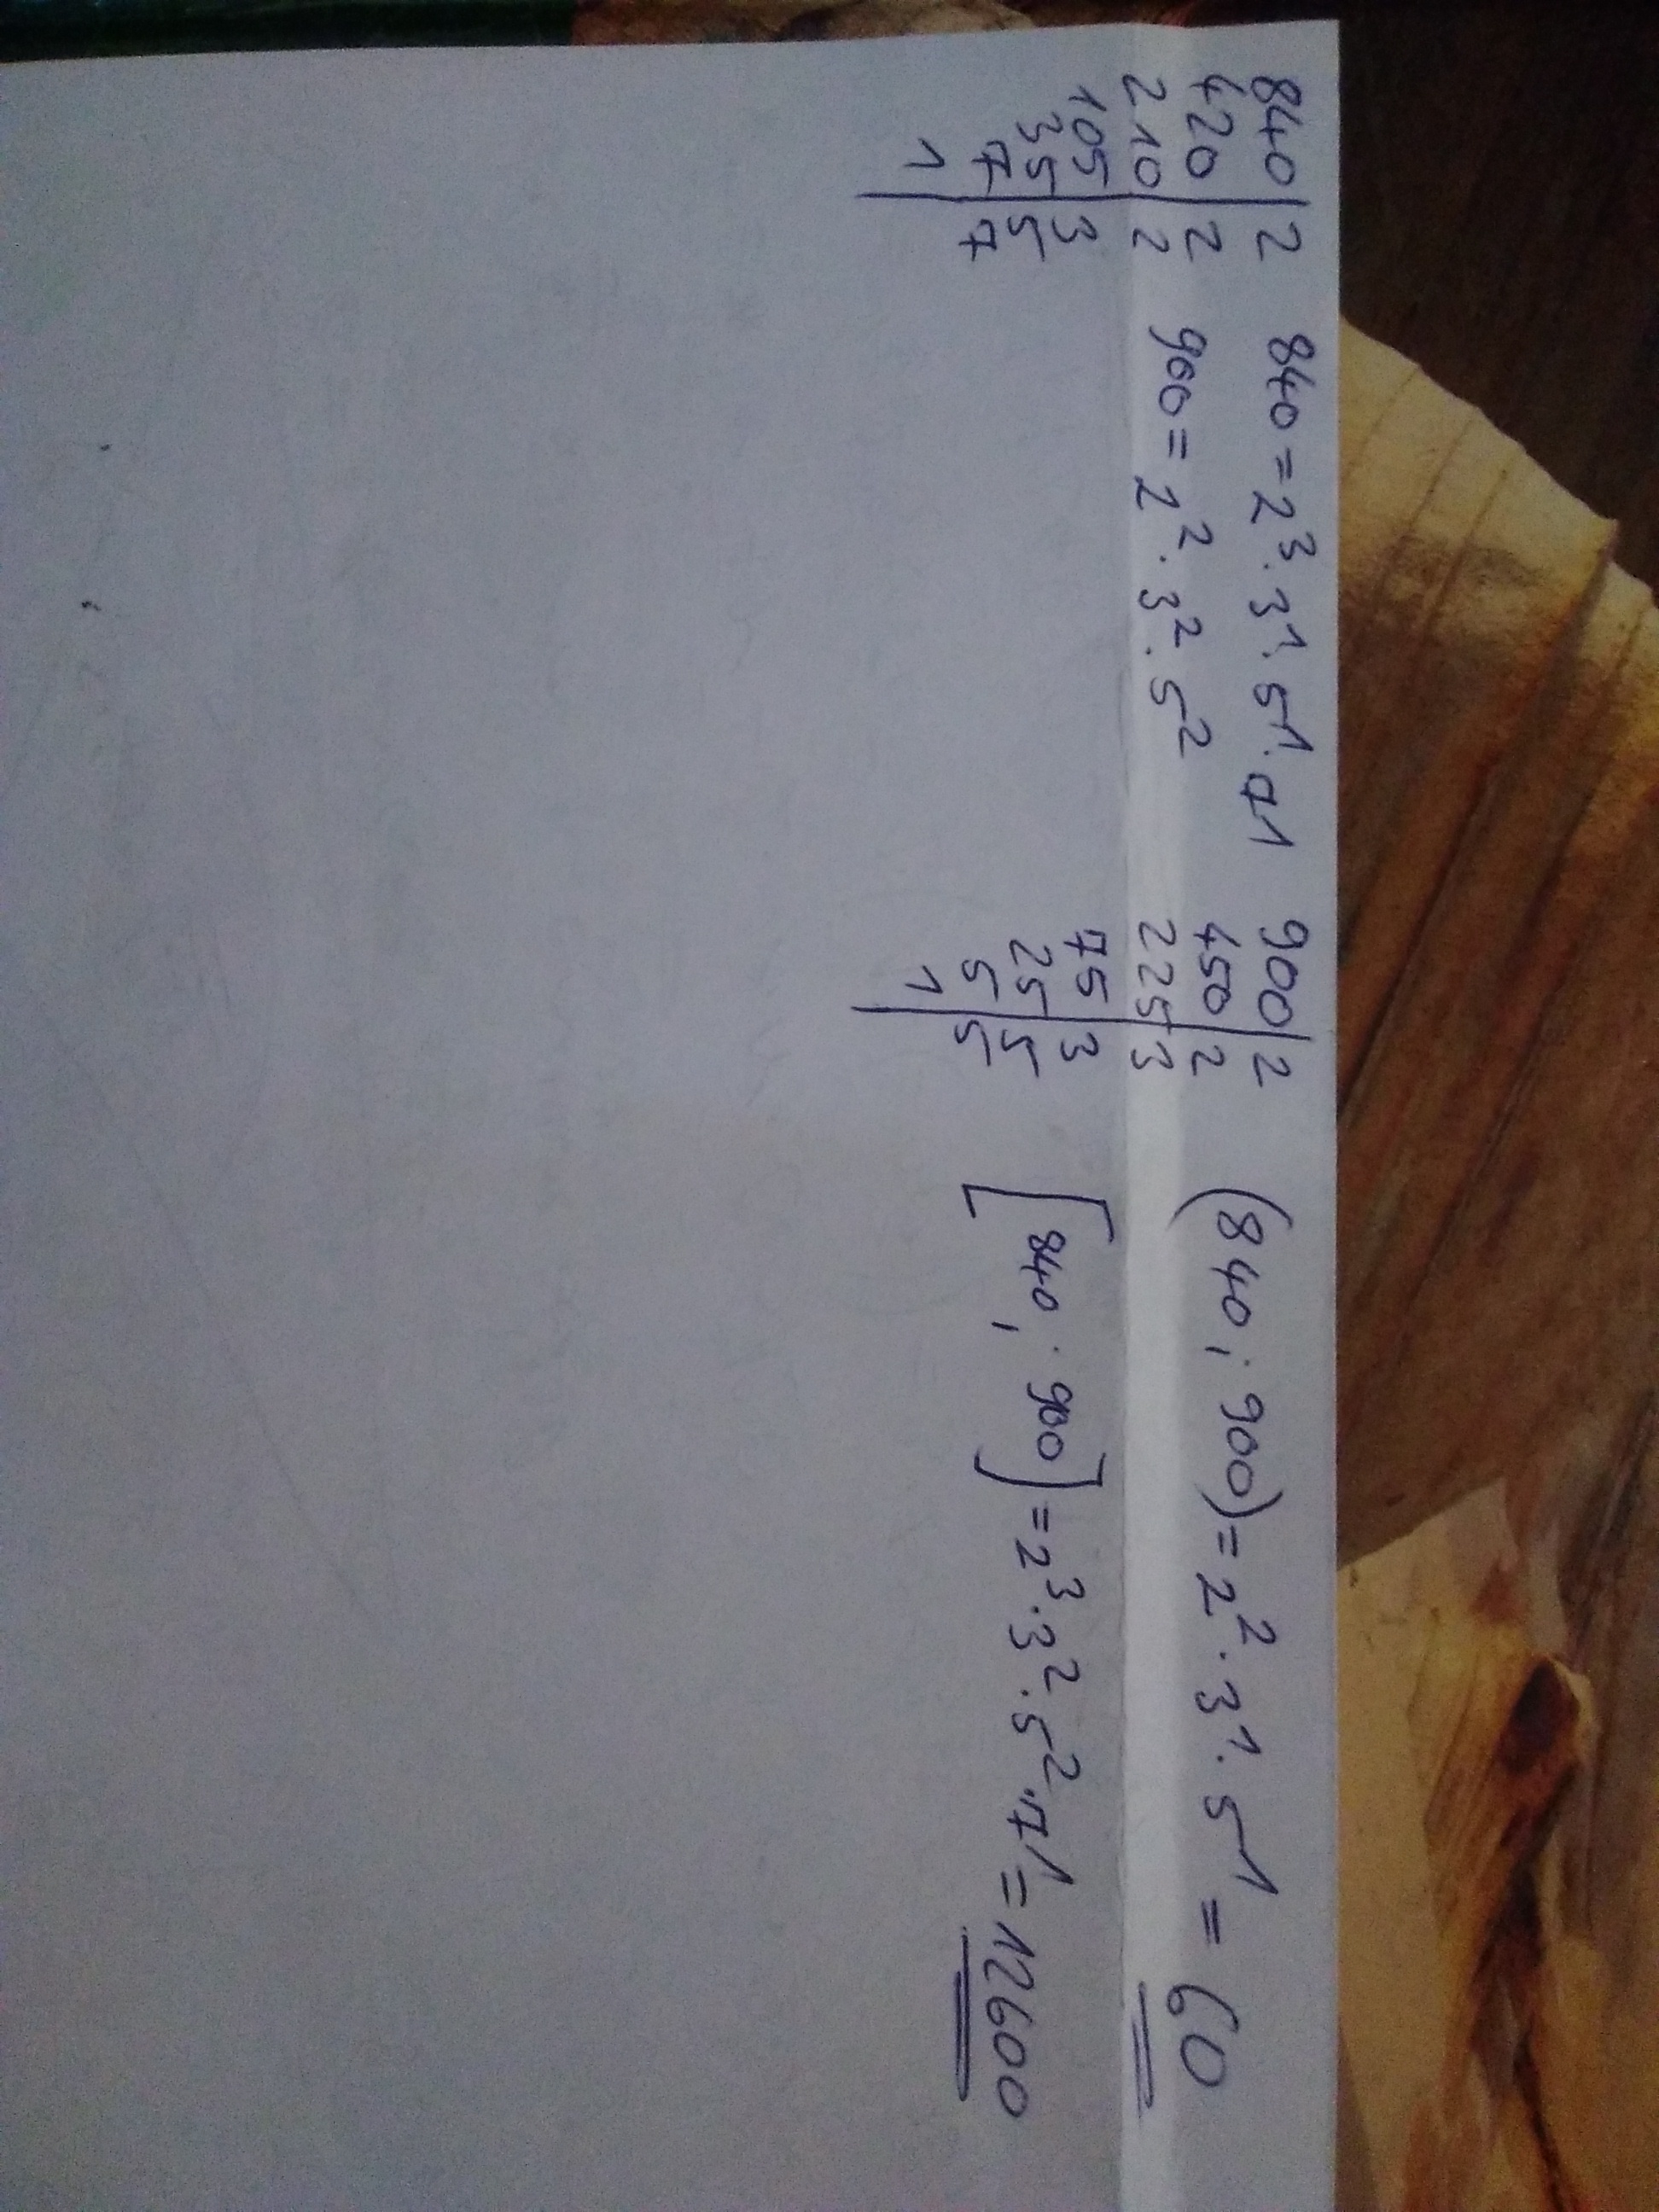 840 | 2
420 | 2
210 | 2
105 | 3
35 | 5
7 | 7
1 |
840 = 2³ · 3¹ · 5¹ · 7¹
900 = 2² · 3² · 5²
900 | 2
450 | 2
225 | 3
75 | 3
25 | 5
5 | 5
1 |
(840 ; 900) = 2² · 3¹ · 5¹ = 60
[840, · 900] = 2³ · 3² · 5² · 7¹ = 12600